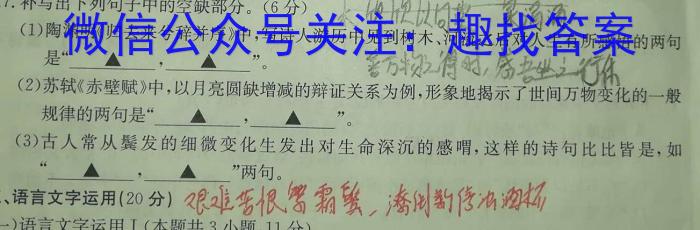 7.补写出下列句子中的空缺部分。(6分)
微信公众号关注：趣找答案
(1)陶渊明《归去来兮辞并序》中,写诗人游历中见到树木、
的两句
是“▲,▲”。
善万物之得时,感吾生之行休
(2)苏轼《赤壁赋》中,以月亮圆缺增减的辩证关系为例,形象地揭示了世间万物变化的一般
规律的两句是“▲,▲”。
(3)古人常从鬓发的细微变化生发出对生命深沉的感喟,这样的诗句比比皆是,如
“▲,▲”两句。
、语言文字运用(20分)
艰难苦恨繁霜鬓,潦倒新停浊酒杯
一)语言文字运用Ⅰ(本题共3小题,11分)